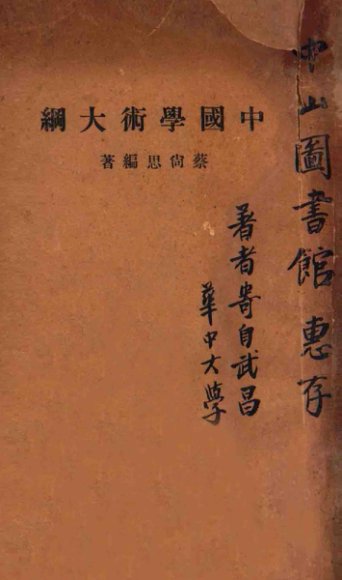 中國學術大綱
蔡尙思編著
中山圖書館惠存
著者寄自武昌
華中大学